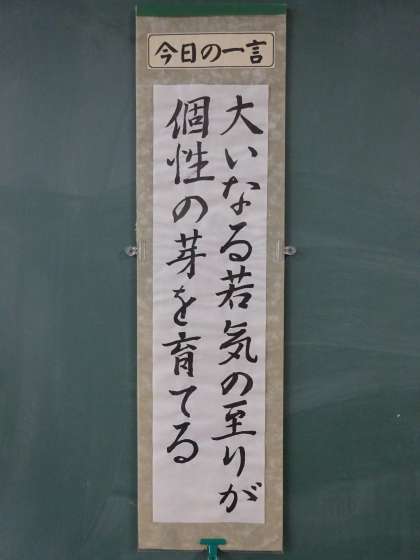 今日の一言
大いなる若気の至りが
個性の芽を育てる